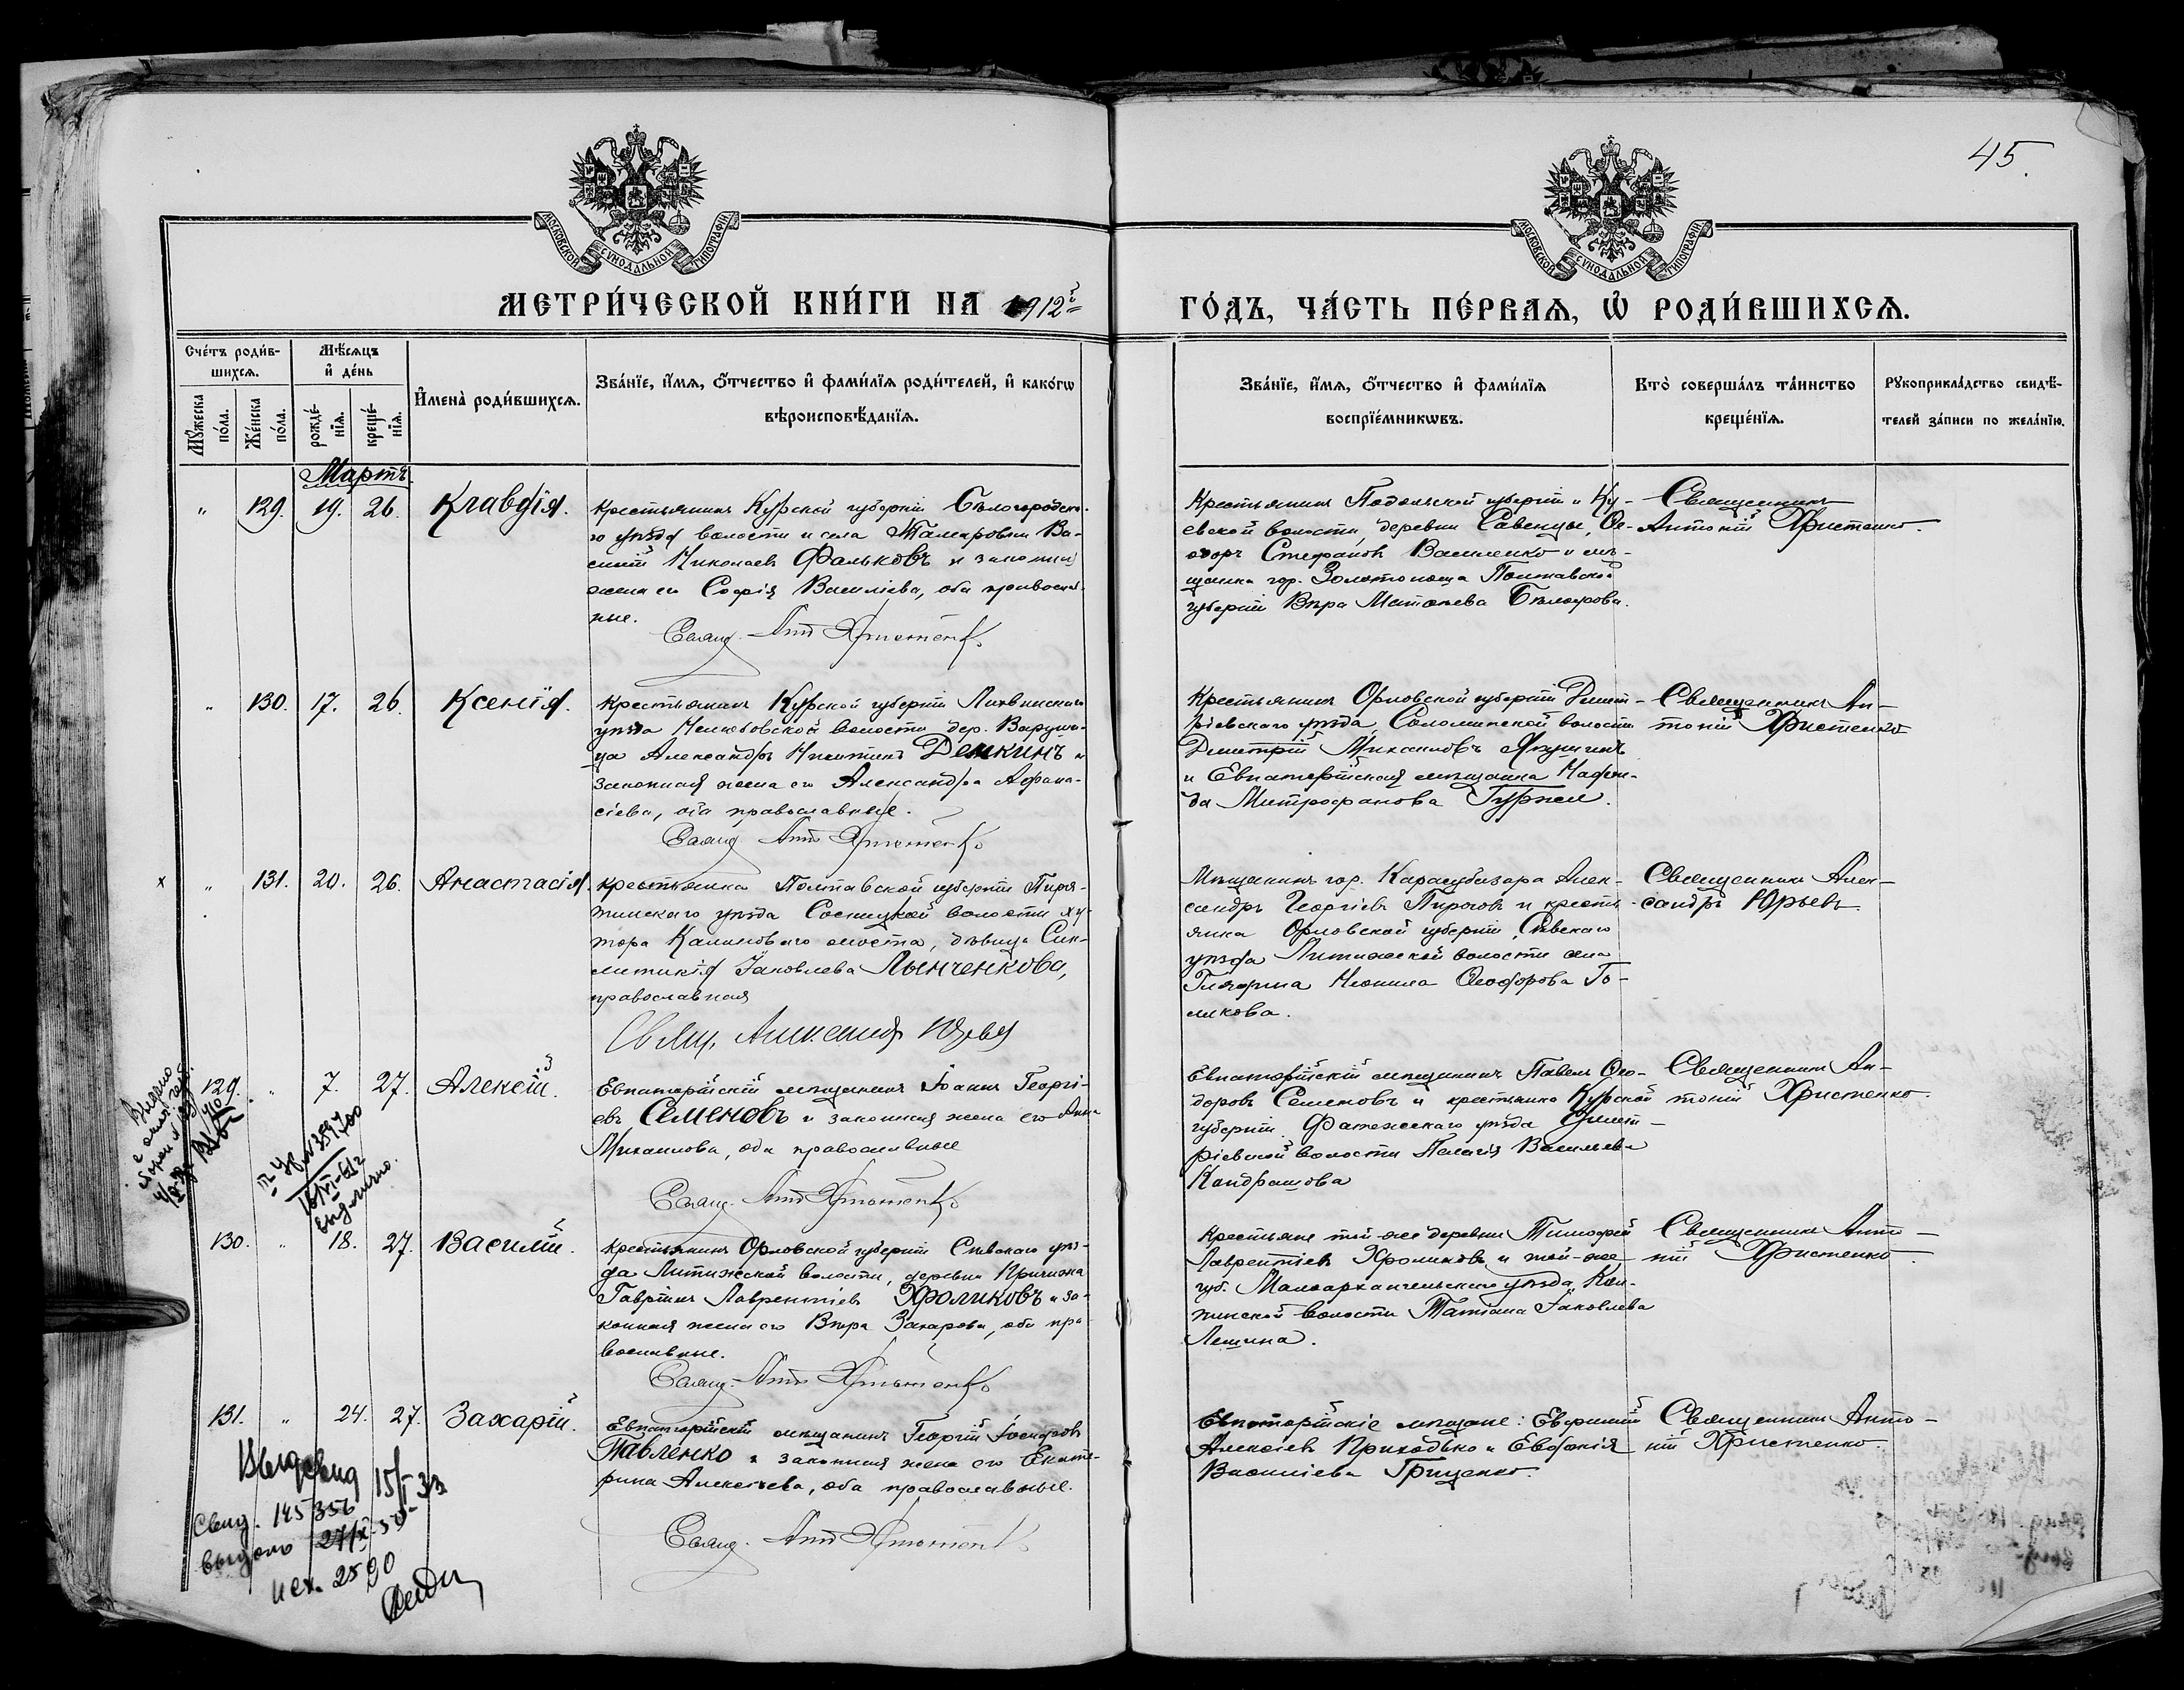 45.
МОСКОВСКОЙ СѴНОДАЛЬНОЙ ТИПОГРАФІИ
МОСКОВСКОЙ СѴНОДАЛЬНОЙ ТИПОГРАФІИ
МЕТРИ́ЧЕСКОЙ КНИ́ГИ НА 1912й
ГО́ДЪ, ЧА́СТЬ ПЕ́РВАЯ, Ѡ҆ РОДИ́ВШИХСЯ.
Сче́тъ роди́в-
шихся.
Му́жеска по́ла.
Же́нска по́ла.
Мѣ́сяцъ
и҆ де́нь
рожде́-
нїя.
креще́-
нїя.
И҆мена̀ роди́вшихся.
Зва́нїе, и҆́мя, ѻ҆́тчество и҆ фами́лїя роди́телей, и҆ како́гѡ
вѣроисповѣ́данїя.
Зва́нїе, и҆́мя, ѻ҆́тчество и҆ фами́лїя
воспрїе́мникѡвъ.
Кто̀ соверша́лъ та́инство
креще́нїя.
Рꙋкоприкла́дство свидѣ́-
телей за́писи по жела́нїю.
Мартъ.
" 129. 19. 26. Клавдія.
Крестьянинъ Курской губерніи Бѣлогородска-
го уѣзда волости и села Тамаровки Ва-
силій Николаевъ Фальковъ и законная
жена его Софія Василіева, оба православ-
ные.
Свящ. Ант Христенко
Крестьянинъ Подольской губерніи и Ку-
евской волости, деревни Савенцы, Ѳе-
одоръ Стефановъ Василенко и мѣ-
щанка гор. Золотоноша Полтавской
губерніи Вѣра Матѳеева Бѣлоусова.
Священникъ
Антоній Христенко.
" 130. 17. 26. Ксенія.
Крестьянинъ Курской губерніи
уѣзда волости дер.
Александръ Никитинъ Демкинъ и
законная жена его Александра Аѳана-
сіева, оба православные.
Свящ Ант Христенко
Крестьянинъ Орловской губерніи Дмит-
ріевскаго уѣзда, Соломинской волости
Дмитрій Михаиловъ
и Евпаторійская мѣщанка Надеж-
да Митрофанова
Священникъ Ан-
тоній Христенко
х " 131. 20. 26. Анастасія.
Крестьянка Полтавской губерніи Пиря-
тинскаго уѣзда волости ху-
тора Калиноваго моста, дѣвица Син-
клитикія Іаковлева Лынченкова,
православная
Свящ. Александръ Юрьевъ
Мѣщанинъ гор. Карасубазара Алек-
сандръ Георгіевъ Пироговъ и кресть-
янка Орловской губерніи, Сѣвскаго
уѣзда Литижской волости села
Неонила Ѳеодорова Го-
ликова.
Священникъ Алек-
сандръ Юрьевъ.
129. " 7. 27. Алексій.
Евпаторійскій мѣщанинъ Іоаннъ Георгі-
евъ Семеновъ и законная жена его Анна
Михаилова, оба православные
Свящ. Ант Христенко
Евпаторійскій мѣщанинъ Павелъ Ѳео-
доровъ Семеновъ и крестьянка Курской
губерніи Фатежскаго уѣзда Дмит-
ріевской волости Пелагія Васильева
Кондрашова
Священникъ Ан-
тоній Христенко.
130. " 18. 27. Василій.
Крестьянинъ Орловской губерніи Сѣвскаго уѣз-
да Литижской волости, деревни
Гавріилъ Лаврентіевъ Хроликовъ и за-
конная жена его Вѣра Захарова, оба пра-
вославные.
Свящ. Ант Христенко
Крестьяне той-же деревни Тимофей
Лаврентіевъ Хроликовъ и той-же
губ. Малоархангельскаго уѣзда,
волости Татіана Іаковлева
Лешина.
Священникъ Анто-
ній Христенко.
131. " 24. 27. Захарій.
Евпаторійскій мѣщанинъ Георгій Іосифовъ
Павленко и законная жена его Екате-
рина Алексѣева, оба православные.
Свящ. Ант Христенко
Евпаторійскіе мѣщане: Евфимій
Алексіевъ Приходько и Евдокія
Василіева Гриценко.
Священникъ Анто-
ній Христенко.
Выдано
16/VI-61г
выд. лично.
15/I 33
Свид. 145356
выдано 27/X-50
исх. 2590